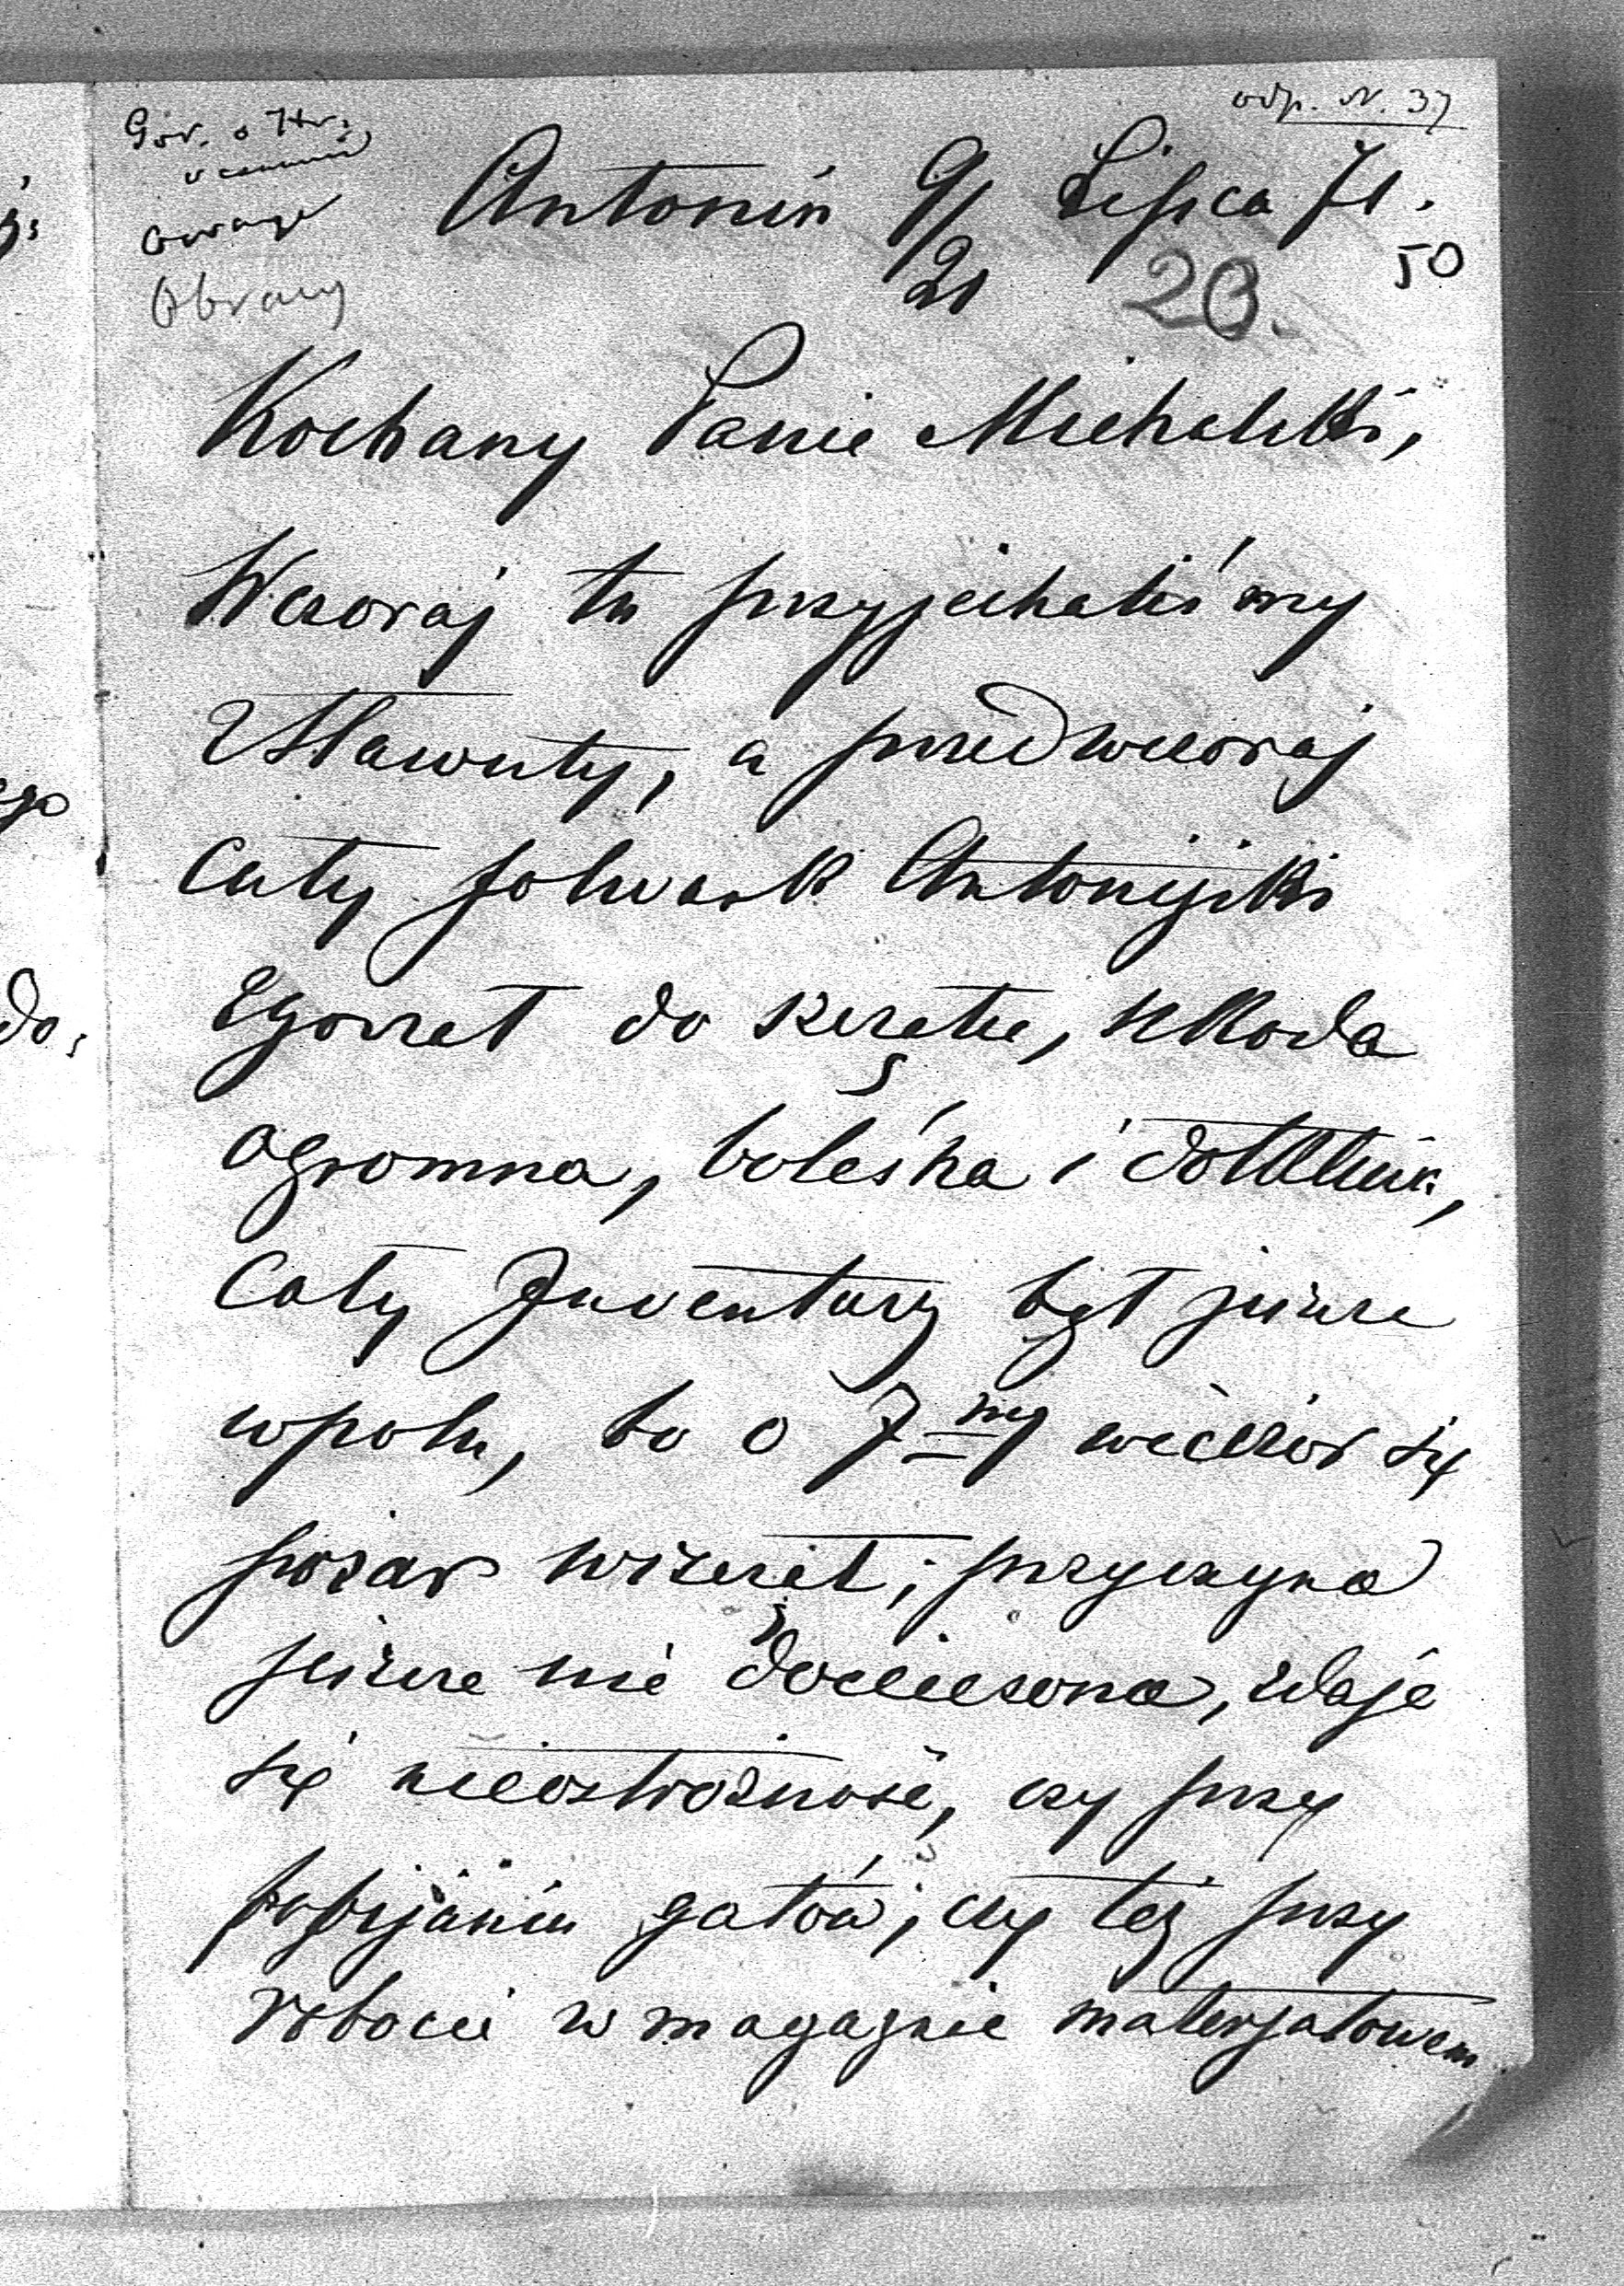 odp. N. 37
Obrazy
Antonin 9/21 Lipca 71.
50
20.
Kochany Panie Michalski,
Wczoraj tu przyjechaliśmy
z Sławuty, a przedwczoraj
cały folwark Antonijski
zgorzał do szczętu, szkoda
ogromna, boleśna i dotkliwa,
cały Inwentarz był jeszcze
w polu, bo o 7my wieczór się
pożar wszczął; przyczyna
jeszcze nie docieczona, zdaje
się nieostrożność, czy przy
pobijaniu gątów, czy też przy
robocie w magaznie materjałowem